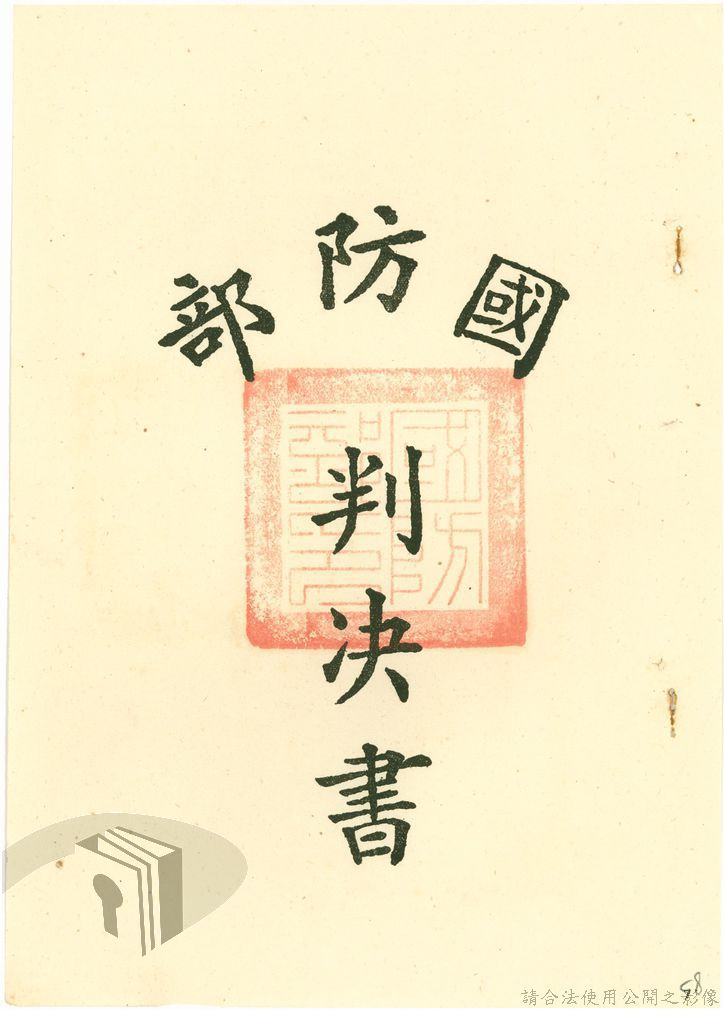 國防部
判決書
國防部印
58
請合法使用公開之影像